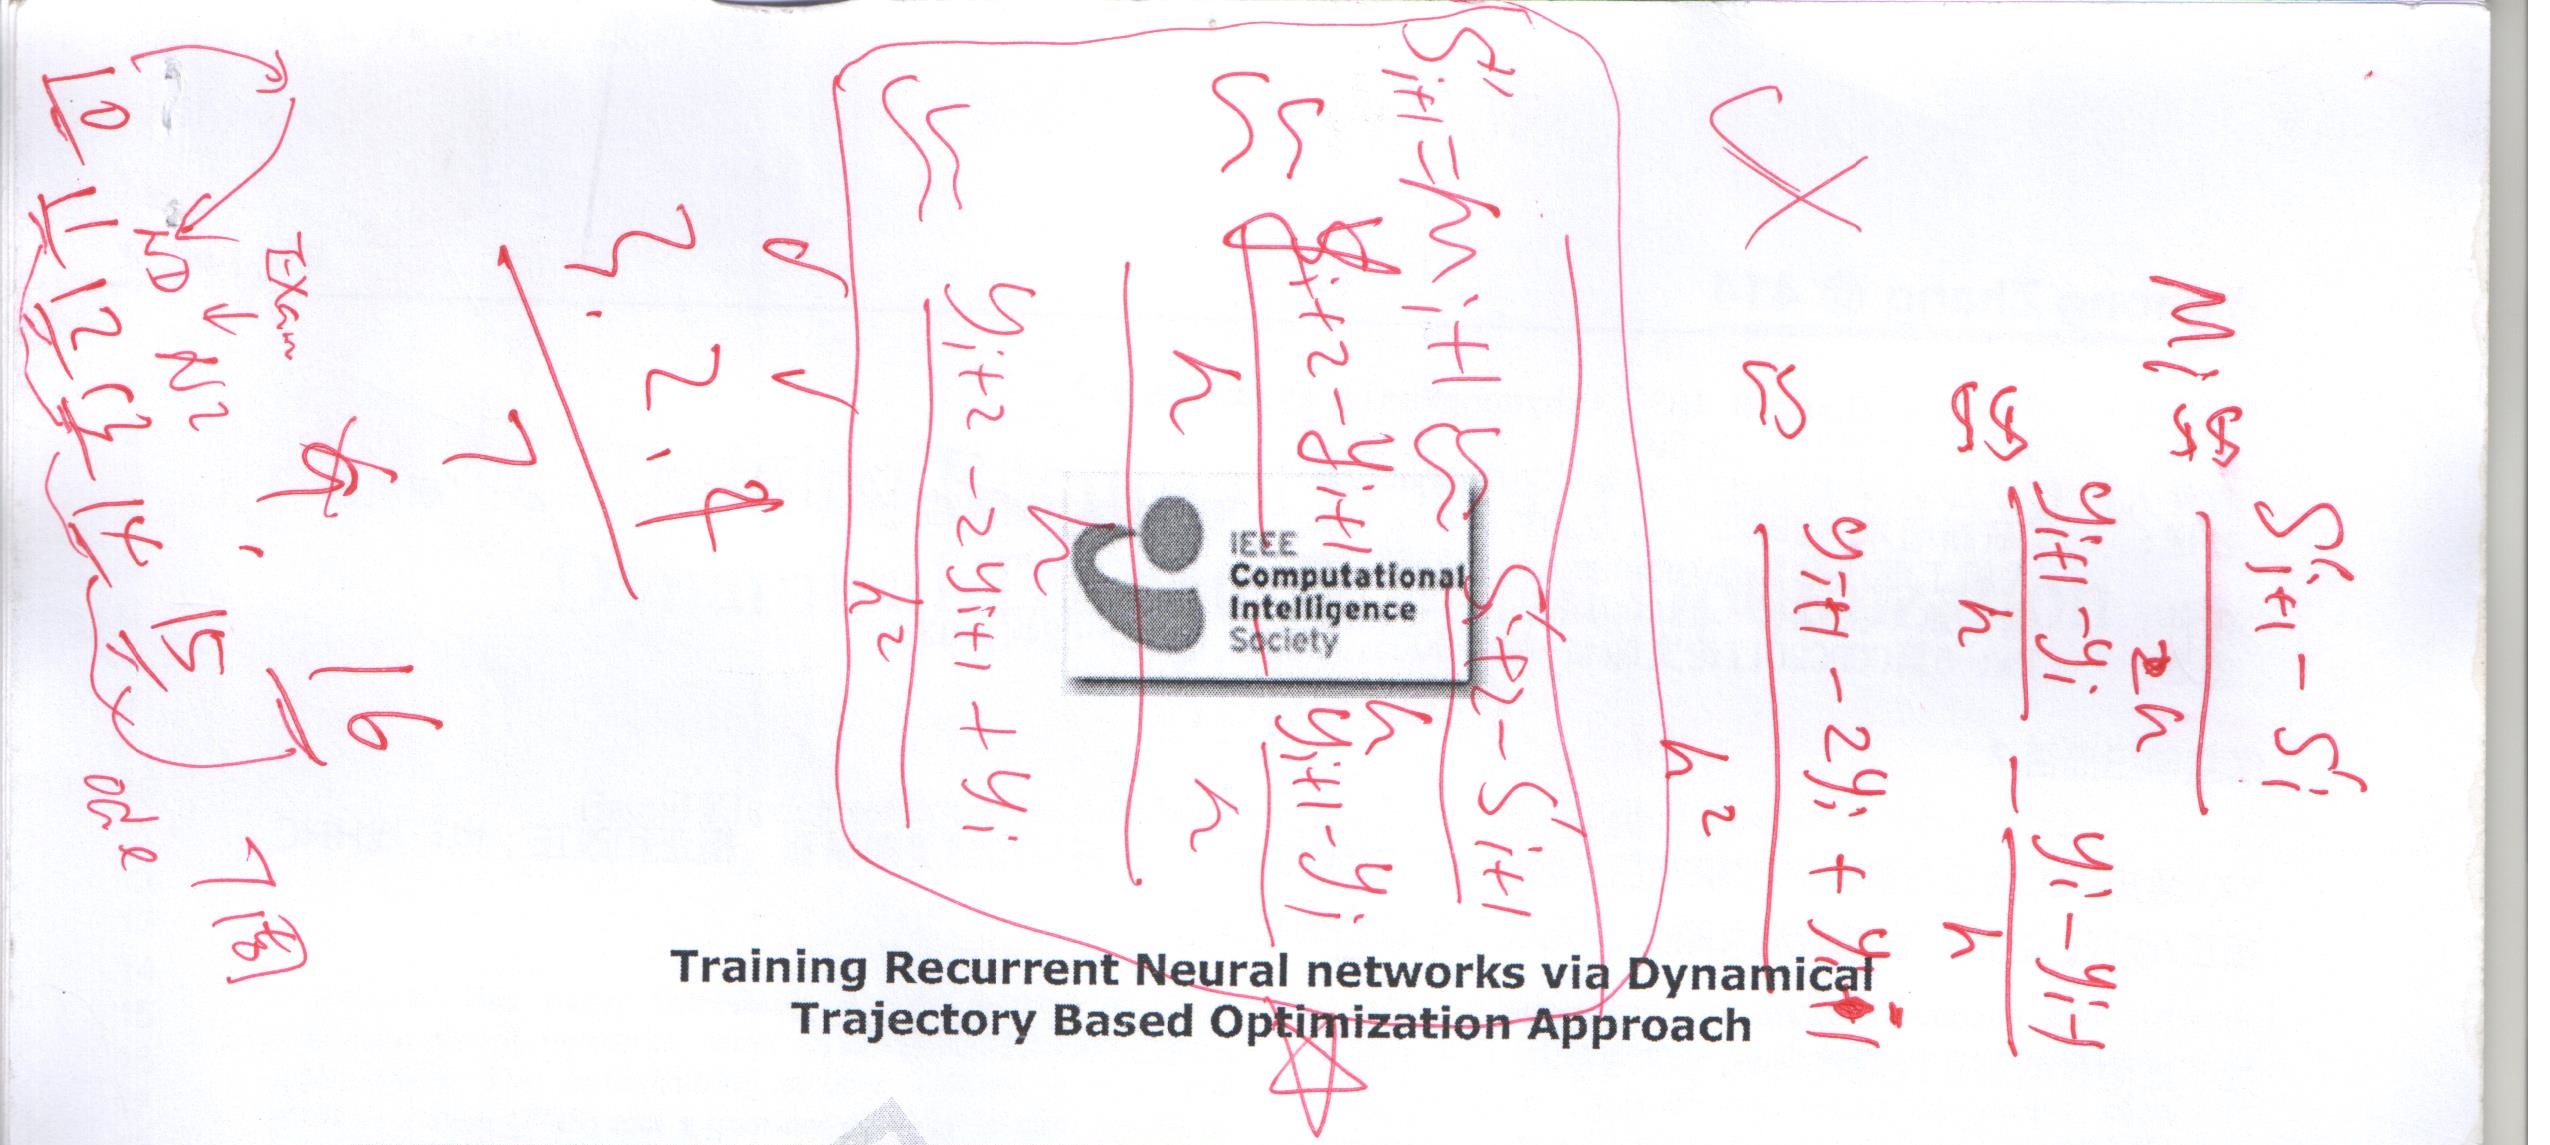 S'i+1 - S'i
Mi ≈ ―――
2h
≈ yi+1 - yi / h - yi - yi-1 / h
≈ yi+1 - 2yi + yi-1
h²
S''i+1 = Mi+1 ≈ S'i+2 - S'i+1
h
≈ yi+2 - yi+1 / h - yi+1 - yi / h
h
≈ yi+2 - 2yi+1 + yi
h²
IEEE
Computational
Intelligence
Society
Training Recurrent Neural networks via Dynamical
Trajectory Based Optimization Approach
3. 2.
7
16
Exam
7周
ND N2 15
10 11 12 13 14
ode